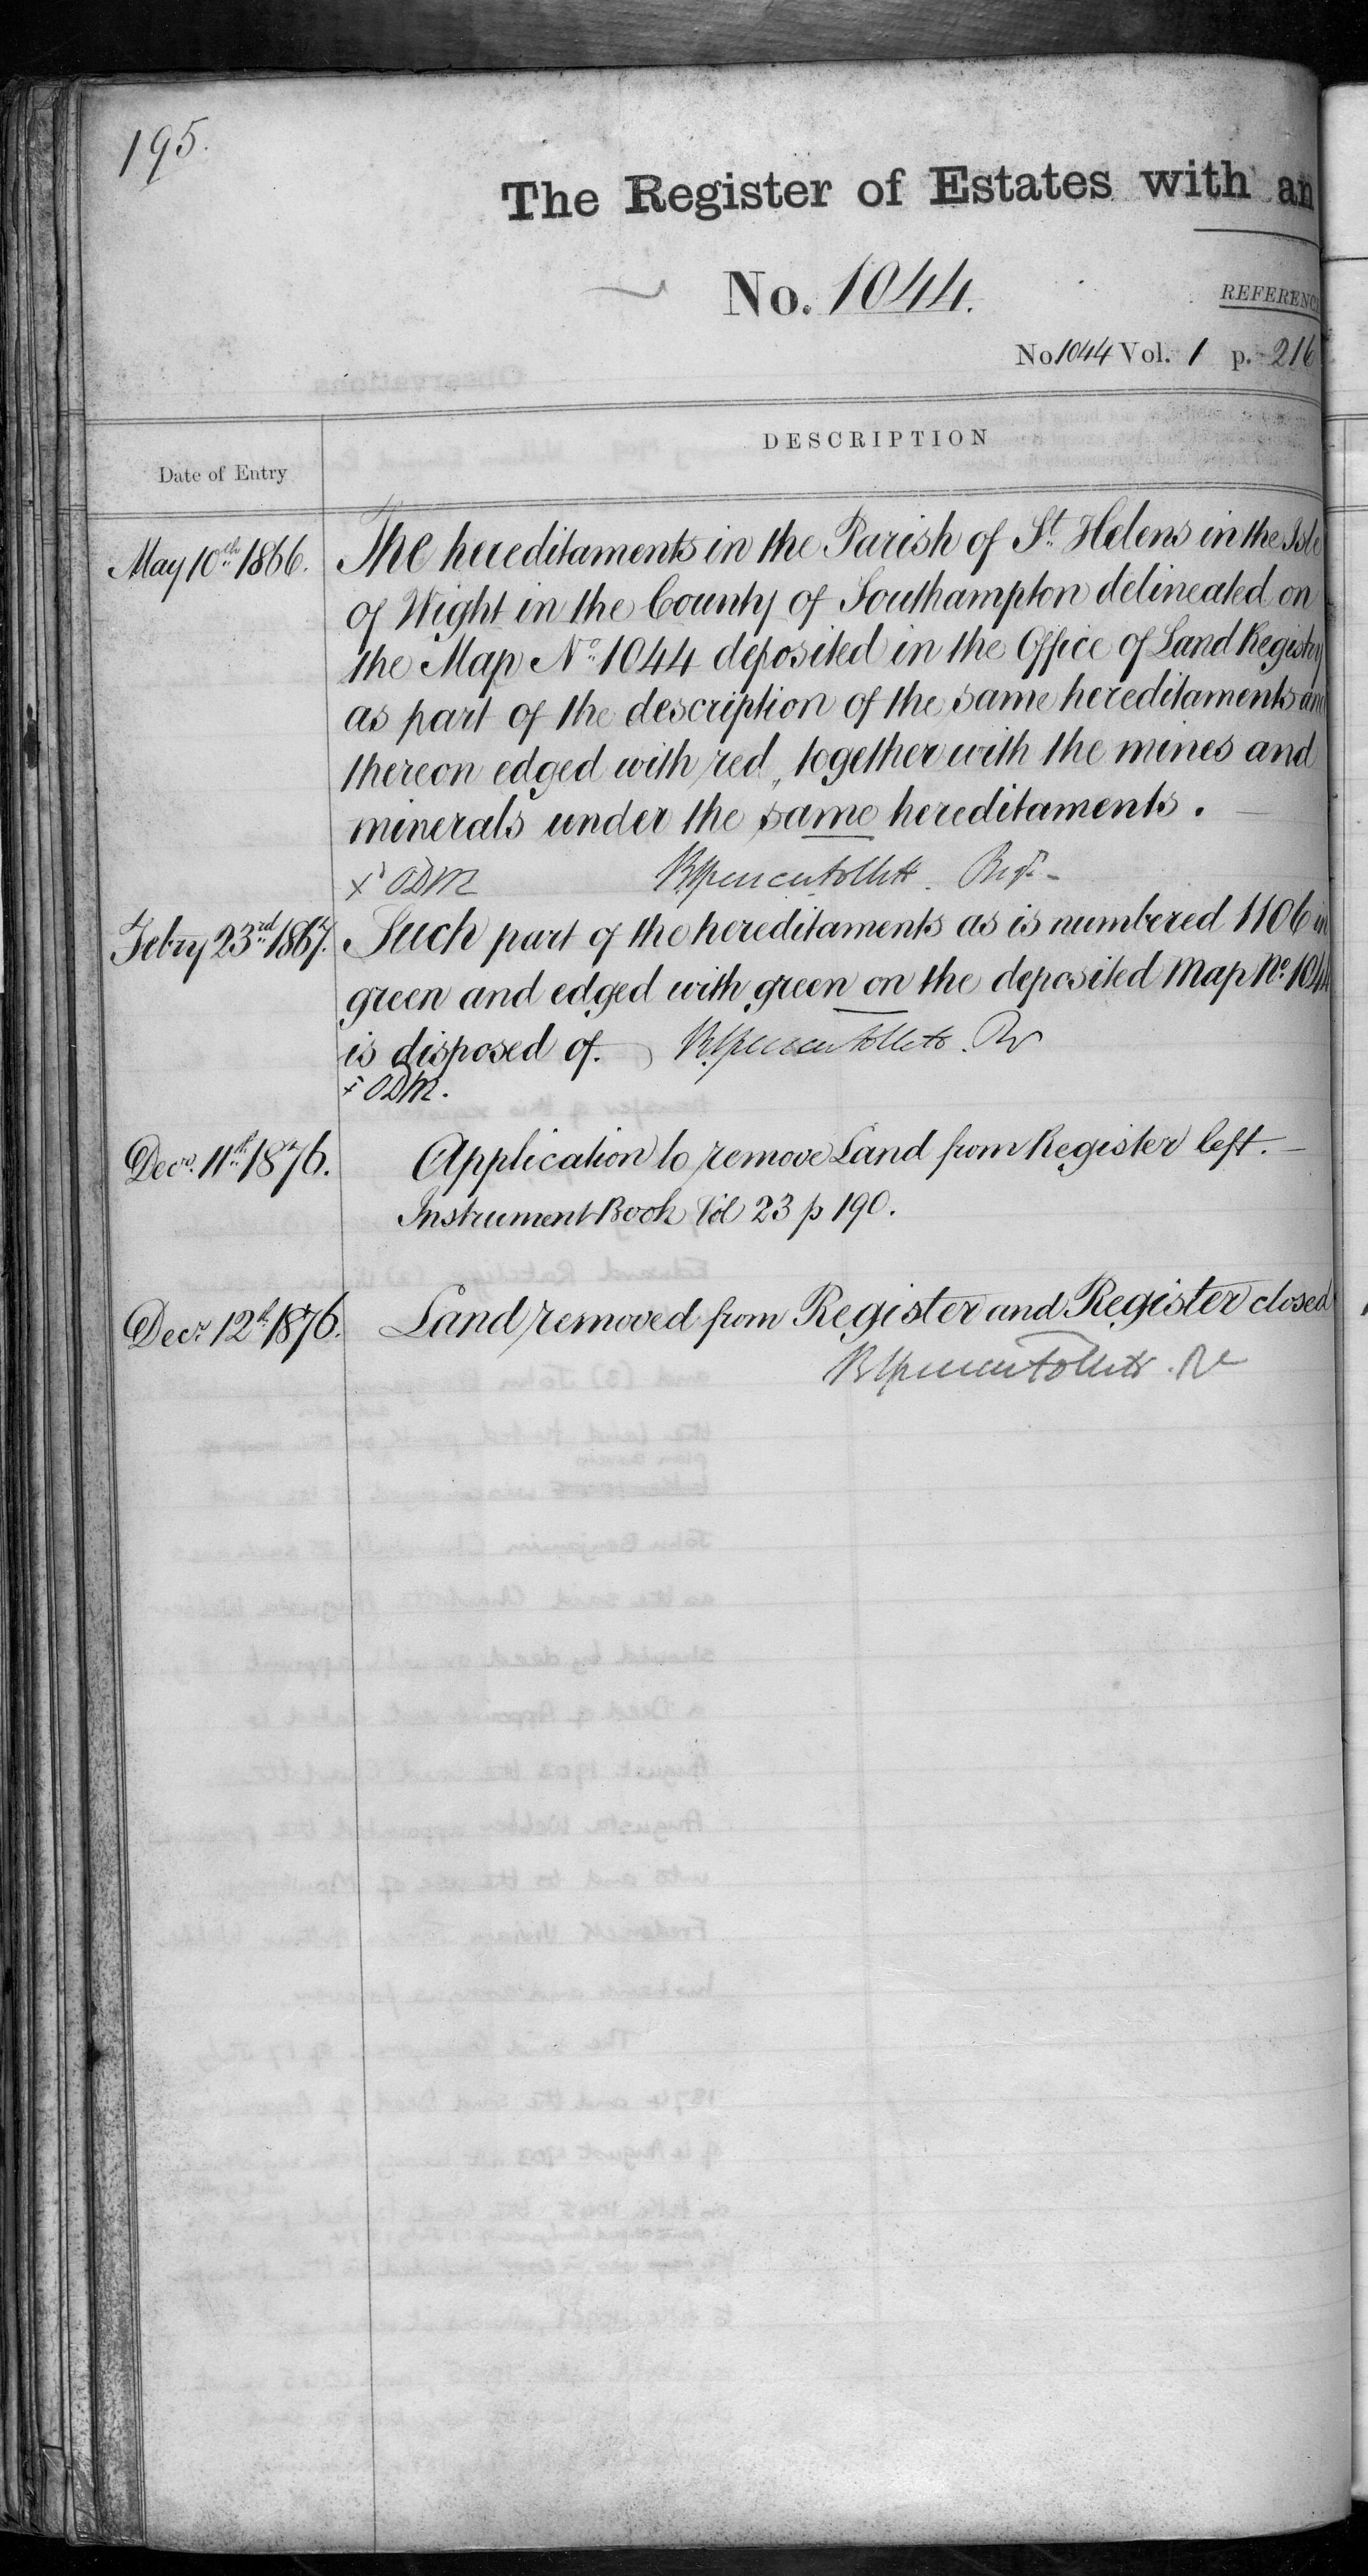 195.
The Register of Estates with an
No. 1044.
REFERENC
No 1044 Vol. 1 p. 216
DESCRIPTION
Date of Entry
May 10th 1866. The hereditaments in the Parish of St. Helens in the Isle
of Wight in the County of Southampton delineated on
the Map No. 1044 deposited in the Office of Land Registry
as part of the description of the same hereditaments and
thereon edged with red, together with the mines and
minerals under the same hereditaments.
x ODM
Febry 23rd 1867. Such part of the hereditaments as is numbered 1106 in
green and edged with green on the deposited Map No. 1044
is disposed of.
x ODM.
Decr. 11th 1876. Application to remove Land from Register left.
Instrument Book Vol 23 p 190.
Decr. 12th 1876. Land removed from Register and Register closed